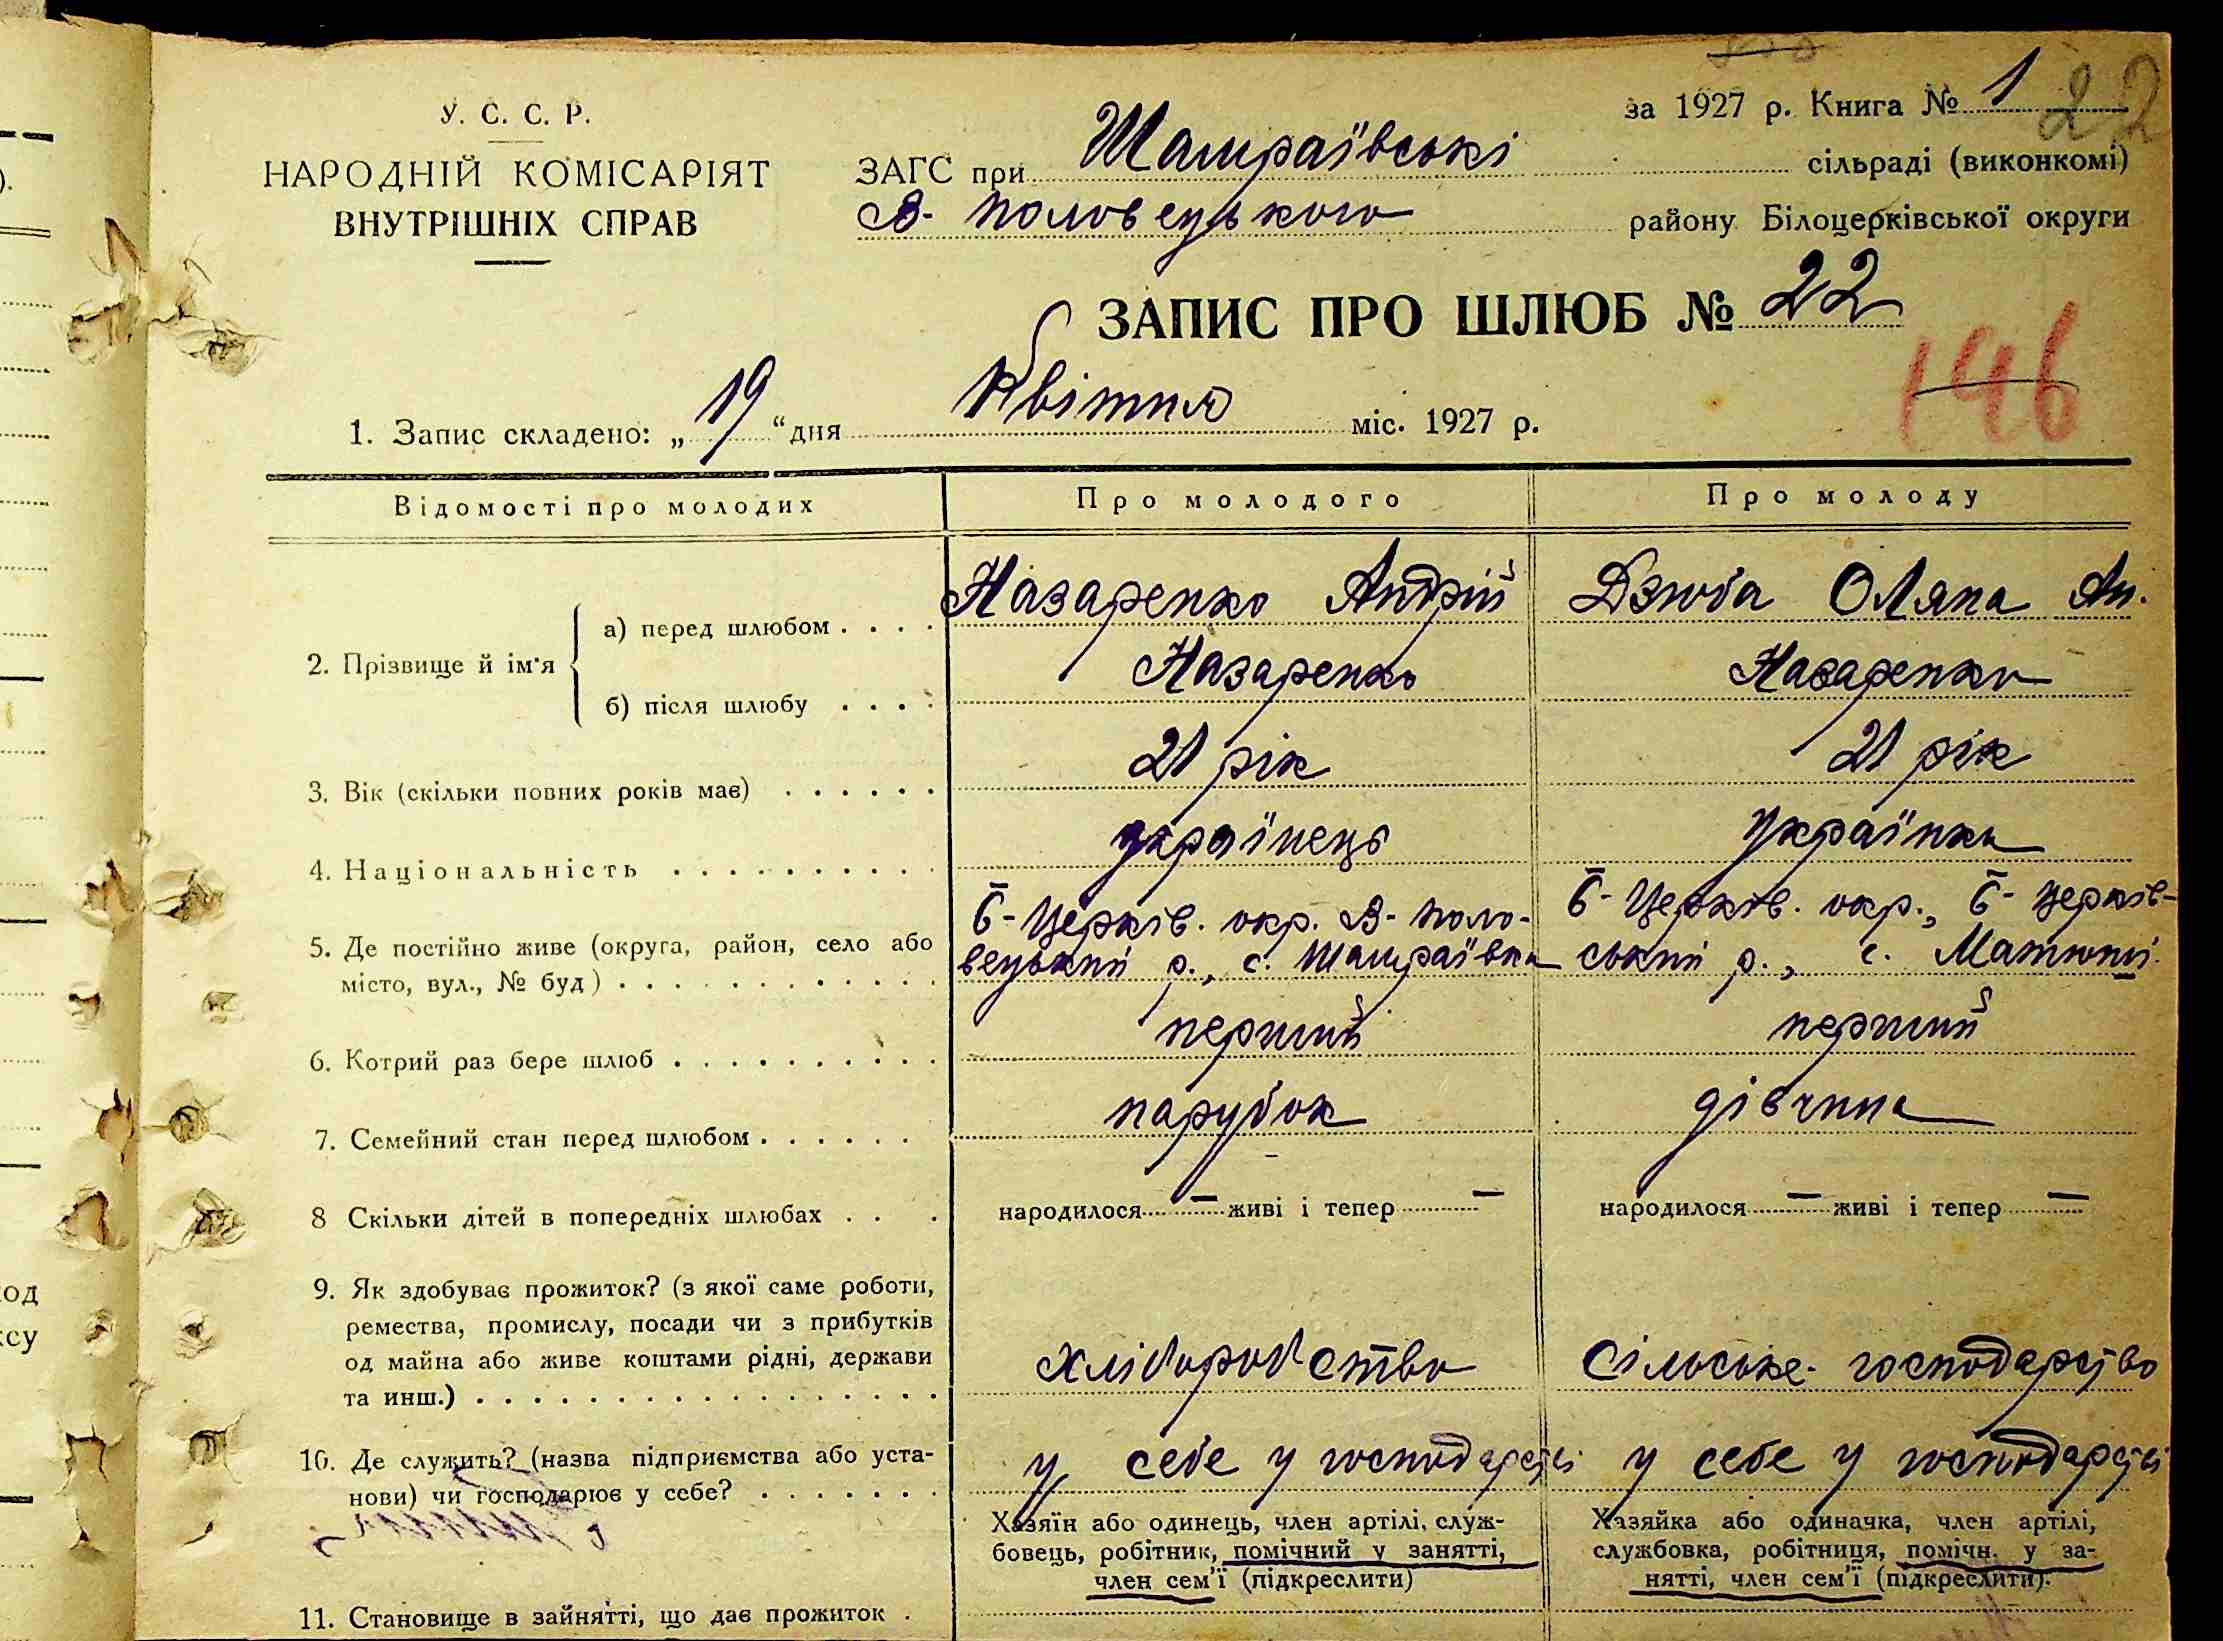 за 1927 р. Книга № 1 22
У. С. С. Р.
НАРОДНІЙ КОМІСАРІЯТ
ВНУТРІШНІХ СПРАВ
ЗАГС при Шамраївські сільраді (виконкомі)
В- Половецького району Білоцерківської округи
ЗАПИС ПРО ШЛЮБ № 22
146
1. Запис складено: „19“ дня Квітня міс. 1927 р.
Відомості про молодих Про молодого Про молоду
2. Прізвище й ім'я
а) перед шлюбом . . . . Назаренко Андрій Дзюба Оляна Ан.
б) після шлюбу . . . . Назаренко Назаренко
3. Вік (скільки повних років має) . . . . . . 21 рік 21 рік
4. Національність . . . . . . . . . . українець Українка
5. Де постійно живе (округа, район, село або Б-Церків. окр. В- Поло- Б-Церків. окр., Б- Церків-
місто, вул., № буд) . . . . . . . . . . . . вецький р., с. Шамраївка ський р., с. Матюші.
6. Котрий раз бере шлюб . . . . . . . . . . перший перший
7. Семейний стан перед шлюбом . . . . . . парубок дівчина
8 Скільки дітей в попередніх шлюбах . . . народилося — живі і тепер — народилося — живі і тепер —
9. Як здобуває прожиток? (з якої саме роботи,
ремества, промислу, посади чи з прибутків
од майна або живе коштами рідні, держави
та инш.) . . . . . . . . . . . . . . . . . хліборобство Сільське- господарство
10. Де служить? (назва підприємства або уста- у себе у господарстві у себе у господарстві
нови) чи господарює у себе? . . . . . . .
Хазяїн або одинець, член артілі, служ- Хазяйка або одиначка, член артілі,
бовець, робітник, помічний у занятті, службовка, робітниця, помічн. у за-
член сем'ї (підкреслити) нятті, член сем'ї (підкреслити).
11. Становище в зайнятті, що дає прожиток .
од
ксу